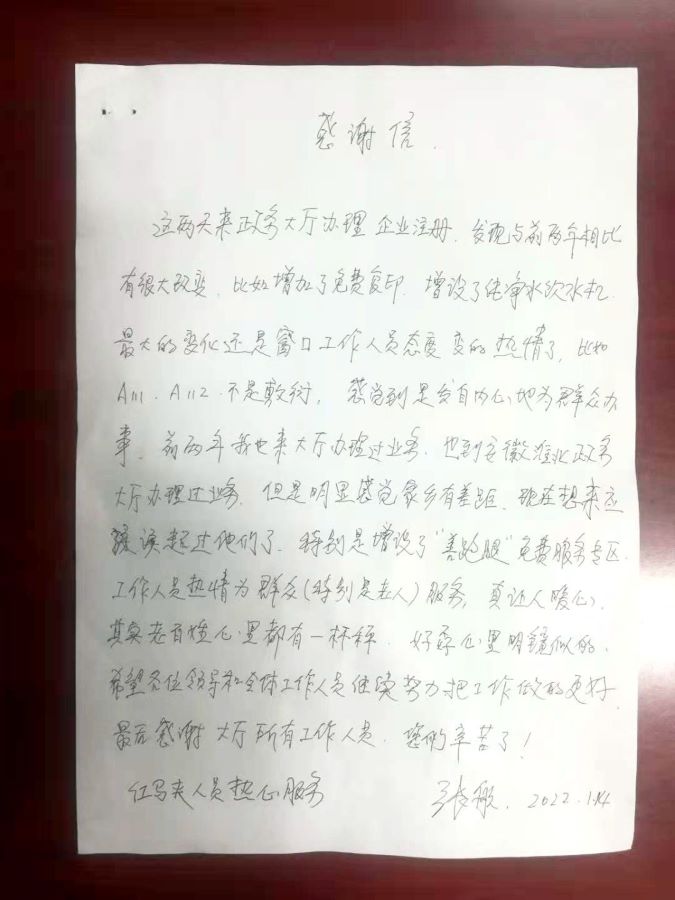 感谢信.
这两天来政务大厅办理企业注册.发现与前两年相比
有很大改变.比如增加了免费复印.增设了纯净水饮水机.
最大的变化还是窗口工作人员态度变的热情了,比如
A111.A112.不是敷衍,感觉到是发自内心地为群众办
事.前两年我也来大厅办理过业务.也到安徽淮北政务
大厅办理过业务.但是明显感觉家乡有差距.现在想来应
该超过他们了.特别是增设了“善跑腿”免费服务专区.
工作人员热情为群众(特别是老人)服务,真让人暖心.
其实老百姓心里都有一杆秤.好孬心里明镜似的.
希望各位领导和全体工作人员继续努力把工作做的更好.
最后感谢大厅所有工作人员.您们辛苦了!
红马夹人员热心服务
张 . 2022.1.14